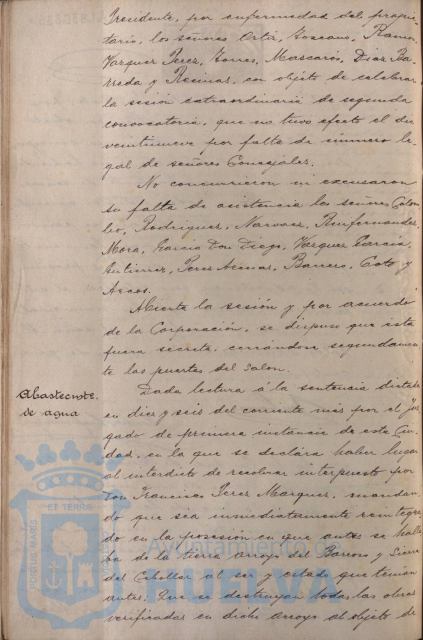 Presidente, por enfermedad del propie
tario, los señores Ortiz, Toscano, Ramos,
Vazquez Perez, Torres, Mascarós, Diaz Ba
rreda y Recinar, con objeto de celebrar
la sesión extraordinaria de segunda
convocatoria, que no tuvo efecto el dia
veintinueve por falta de número le
gal de señores Concejales.
No concurrieron ni excusaron
su falta de asistencia los señores Colom
bo, Rodriguez, Narvaez, Benfernandez,
Mora, Garcia Don Diego, Vazquez Garcia,
Gutierrez, Perez Aznar, Barrero, Coto y
Arcos.
Abierta la sesión y por acuerdo
de la Corporación, se dispuso que esta
fuera secreta, cerrándose seguidamen
te las puertas del Salón.
Abastecmte.
de agua
Dada lectura á la sentencia dictada
en diez y seis del corriente mes por el Juz
gado de primera instancia de esta Ciu
dad, en la que se declara haber lugar
al interdicto de recobrar interpuesto por
Don Francisco Perez Marquez, mandan
do que sea inmediatamente reintegra
do en la posesión en que antes se halla
ba de la tierra arroyo del Barroso y Sierra
del Caballar al ser y estado que tenian
antes. Que se destruyan todas las obras
verificadas en dicho arroyo al objeto de
PORTUS MARIS
ET TERRE
Ayuntamiento de
HUELVA